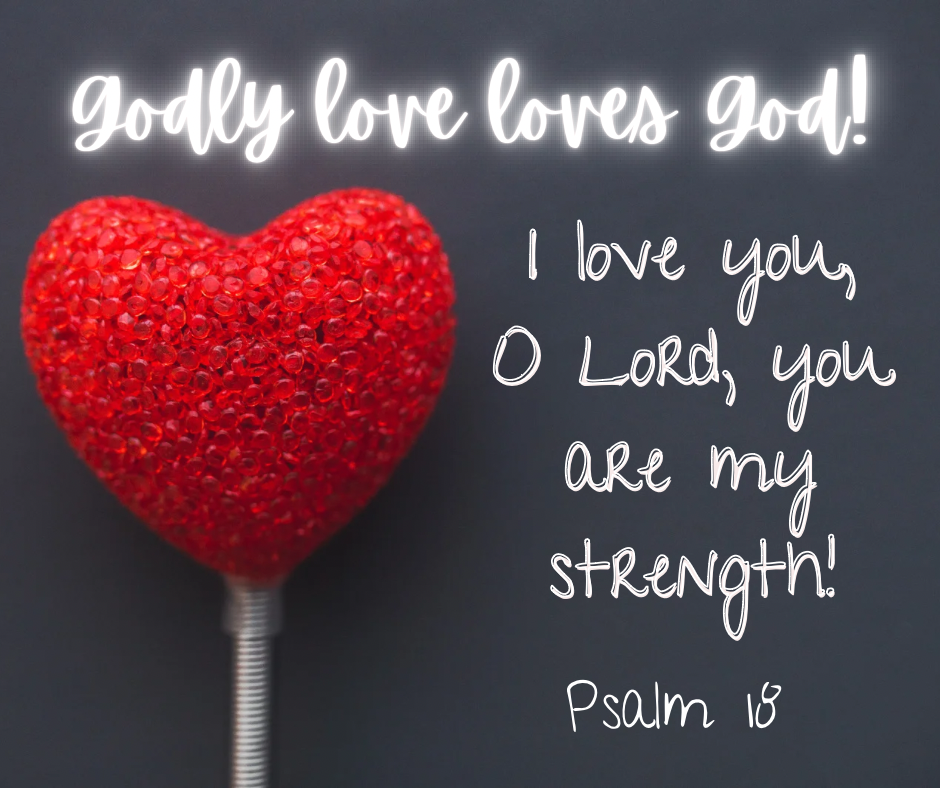 Godly love loves God!
I love you,
O Lord, you
are my
strength!
Psalm 18